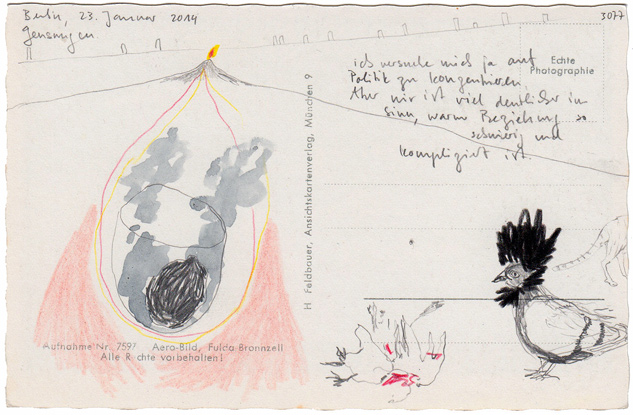 Berlin, 23. Januar 2014
Gensungen
3077
ich versuche mich ja auf
Politik zu konzentrieren.
Aber mir ist viel deutlicher im
Sinn, warum Beziehung so
schwierig und
kompliziert ist.
Echte
Photographie
H. Feldbauer, Ansichtskartenverlag, München 9
Aufnahme Nr. 7597 Aero-Bild, Fulda-Bronnzell
Alle R chte vorbehalten!